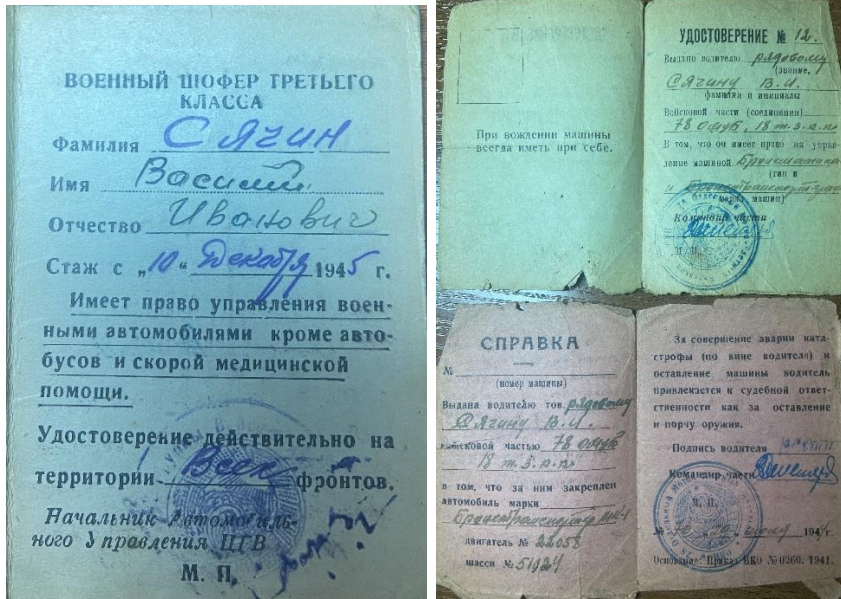 ВОЕННЫЙ ШОФЕР ТРЕТЬЕГО
КЛАССА
Фамилия Сячин
Имя Василий
Отчество Иванович
Стаж с „10“ Декабря 1945 г.
Имеет право управления воен-
ными автомобилями кроме авто-
бусов и скорой медицинской
помощи.
Удостоверение действительно на
территории Всех фронтов.
Начальник Автомобиль-
ного Управления ЦГВ
М. П.
При вождении машины
всегда иметь при себе.
УДОСТОВЕРЕНИЕ № 12.
Выдано водителю рядовому
(звание,
Сячину В.И.
фамилия и инициалы
Войсковой части (соединения)
78
В том, что он имеет право на управ-
ление машиной
(тип и
и Бронетранспортером
марка машин)
Командир части
СПРАВКА
№
(номер машины)
Выдана водителю тов. рядовому
Сячину В.И.
войсковой частью 78
в том, что за ним закреплен
автомобиль марки
Бронетранспортер
двигатель № 22058
шасси № 51024
За совершение аварии ката-
строфы (по вине водителя) и
оставление машины водитель
привлекается к судебной ответ-
ственности как за оставление
и порчу оружия.
Подпись водителя
Командир части
М. П.
194 г.
Основание: Приказ НКО № 0260. 1941.